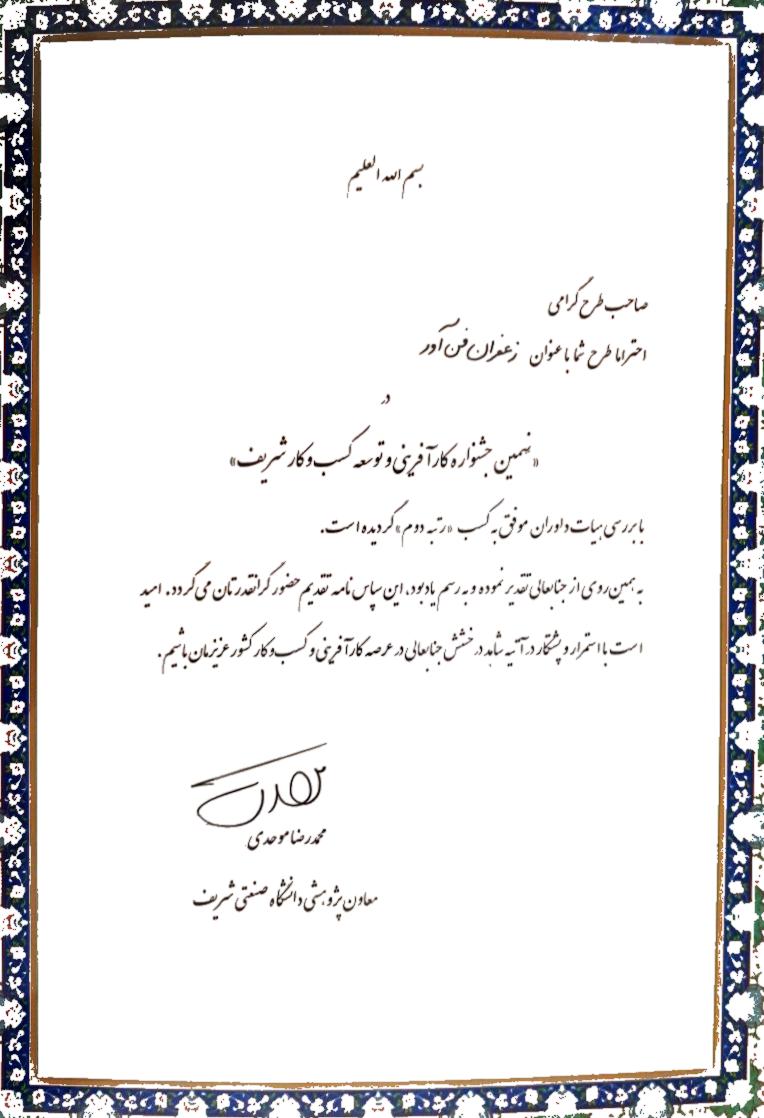 بسم الله العلیم
صاحب طرح گرامی
احتراما طرح شما با عنوان زعفران فن آور
در
«نهمین جشنواره کارآفرینی و توسعه کسب و کار شریف»
با بررسی هیات داوران موفق به کسب «رتبه دوم» گردیده است.
به همین روی از جنابعالی تقدیر نموده و به رسم یادبود، این سپاس نامه تقدیم حضور گرانقدرتان می گردد. امید
است با استمرار و پشتکار در آتیه شاهد درخشش جنابعالی در عرصه کارآفرینی و کسب و کار کشور عزیزمان باشیم.
محمدرضا موحدی
معاون پژوهشی دانشگاه صنعتی شریف